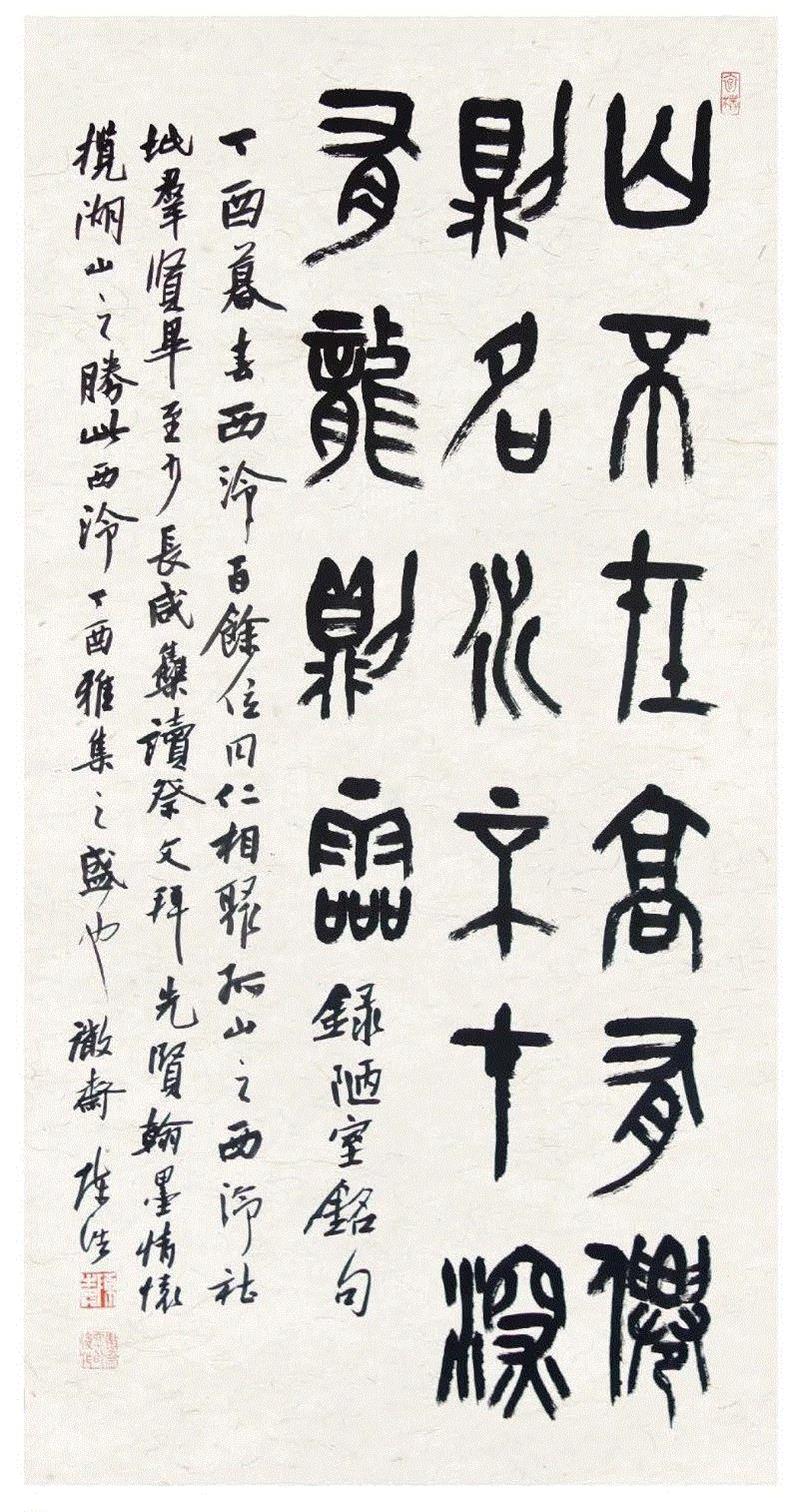 山不在高有僊
則名水不才深
有龍則靈錄陋室銘句
丁酉暮春西泠百餘位同仁相聚孤山之西泠社
址羣賢畢至少長咸集讀祭文拜先賢翰墨情懷
攬湖山之勝此西泠丁酉雅集之盛也齋陳浩